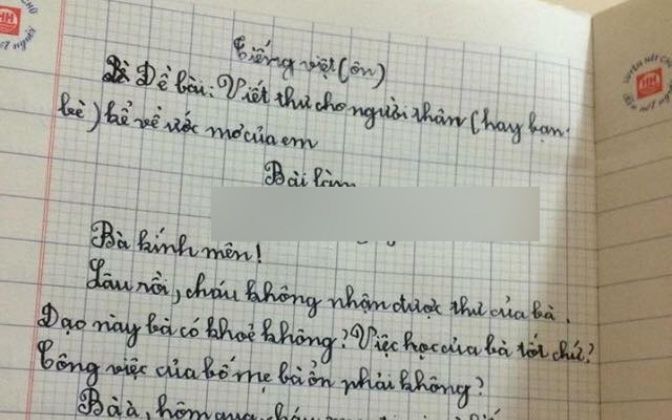 Tiếng việt (ôn)
Đề bài: Viết thư cho người thân (hay bạn
bè) kể về ước mơ của em
Bài làm
Bà kính mên!
Lâu rồi, cháu không nhận được thư của bà.
Dạo này bà có khoẻ không? Việc học của bà tốt chứ?
Công việc của bố mẹ bà ổn phải không?
Bà à, hôm qua, cháu